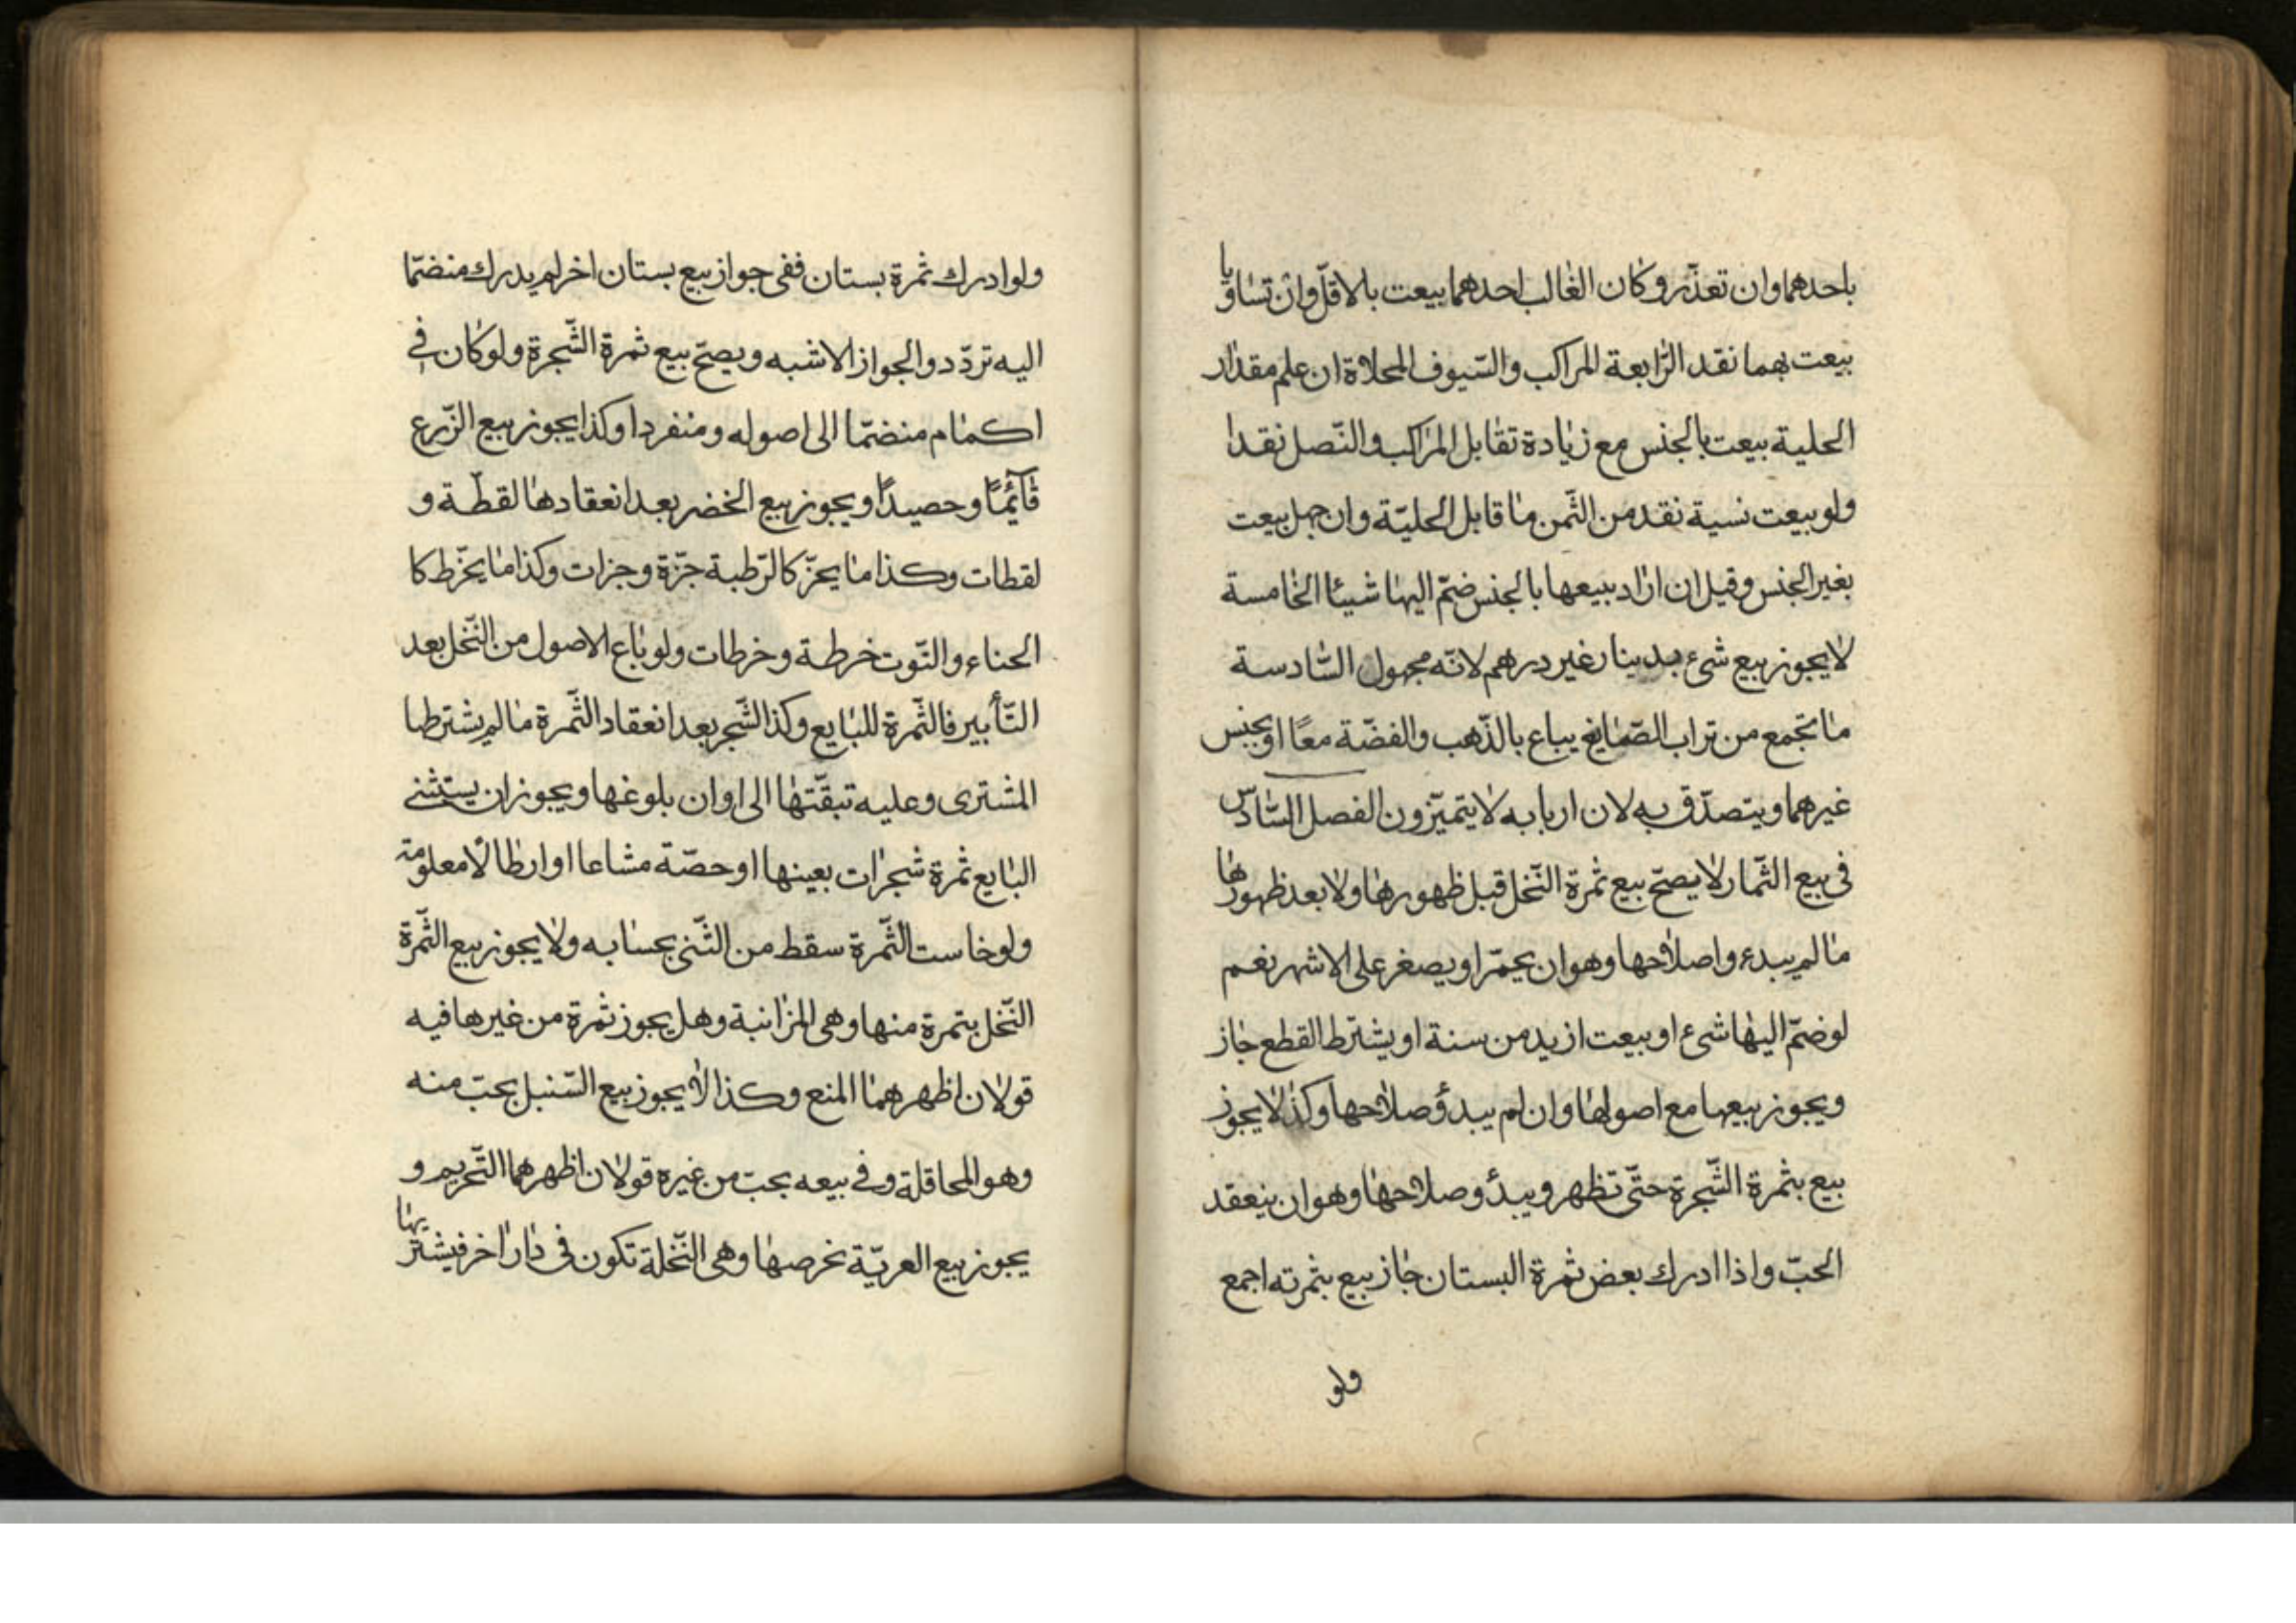 باحدهما وان تعذّر وكان الغالب احدهما بيعت بالاقلّ وان تساويا
بيعت بهما نقد الرّابعة المراكب والسّيوف المحلاة ان علم مقدار
الحلية بيعت بالجنس مع زيادة تقابل المراكب والنّصل نقدا
ولو بيعت نسية نقد من الثّمن ما قابل الحليّة وان جهل بيعت
بغير الجنس وقيل ان اراد بيعها بالجنس ضمّ اليها شيئا الخامسة
لا يجوز بيع شىء بدينار غير درهم لانّه مجهول السّادسة
ما تجمع من تراب الصّايغ يباع بالذّهب والفضّة معًا او بجنس
غيرهما ويتصدّق به لان اربابه لا يتميّزون الفصل السّادس
فى بيع الثّمار لا يصحّ بيع ثمرة النّخل قبل ظهورها ولا بعد ظهورها
ما لم يبدء واصلاحها وهو ان يحمّر او يصغر على الاشهر نعم
لو ضمّ اليها شىء او بيعت ازيد من سنة او يشترط القطع جاز
ويجوز بيعها مع اصولها وان لم يبدؤ صلاحها وكذا لا يجوز
بيع بثمرة الشّجرة حتّى تظهر ويبدأ وصلاحها وهو ان ينعقد
الحبّ واذا ادرك بعض ثمرة البستان جاز بيع بثمرته اجمع
ولو
ولو ادرك ثمرة بستان ففى جواز بيع بستان اخر لم يدرك منضمّا
اليه تردّد والجواز الاشبه ويصحّ بيع ثمرة الشّجرة ولو كان فى
اكمام منضمّا الى اصوله ومنفردا وكذا يجوز بيع الزّرع
قآئمًا وحصيدًا ويجوز بيع الخضر بعد انعقادها لقطّة و
لقطات وكذا ما يجزّ كالرّطبة جزّة وجزات وكذا ما يخرط كا
الحناء والتّوت خرطة وخرطات ولو باع الاصول من النّخل بعد
التّأبير فالثّمرة للبايع وكذا الشّجر بعد انعقاد الثّمرة ما لم يشترطها
المشترى وعليه تبقّتها الى اوان بلوغها ويجوز ان يستثنى
البايع ثمرة شجرات بعينها او حصّة مشاعا او ارطالا معلومة
ولو خاست الثّمرة سقط من الثّنى بحسابه ولا يجوز بيع الثّمرة
النّخل بتمرة منها وهى المزانبة وهل يجوز ثمرة من غيرها فيه
قولان اظهرهما المنع وكذا لا يجوز بيع السّنبل بحبّ منه
وهو المحاقلة وفى بيعه بحبّ من غيره قولان اظهرهما التّحريم و
يجوز بيع العريّة بخرصها وهى النّخلة تكون فى دار اخر فيشتريها